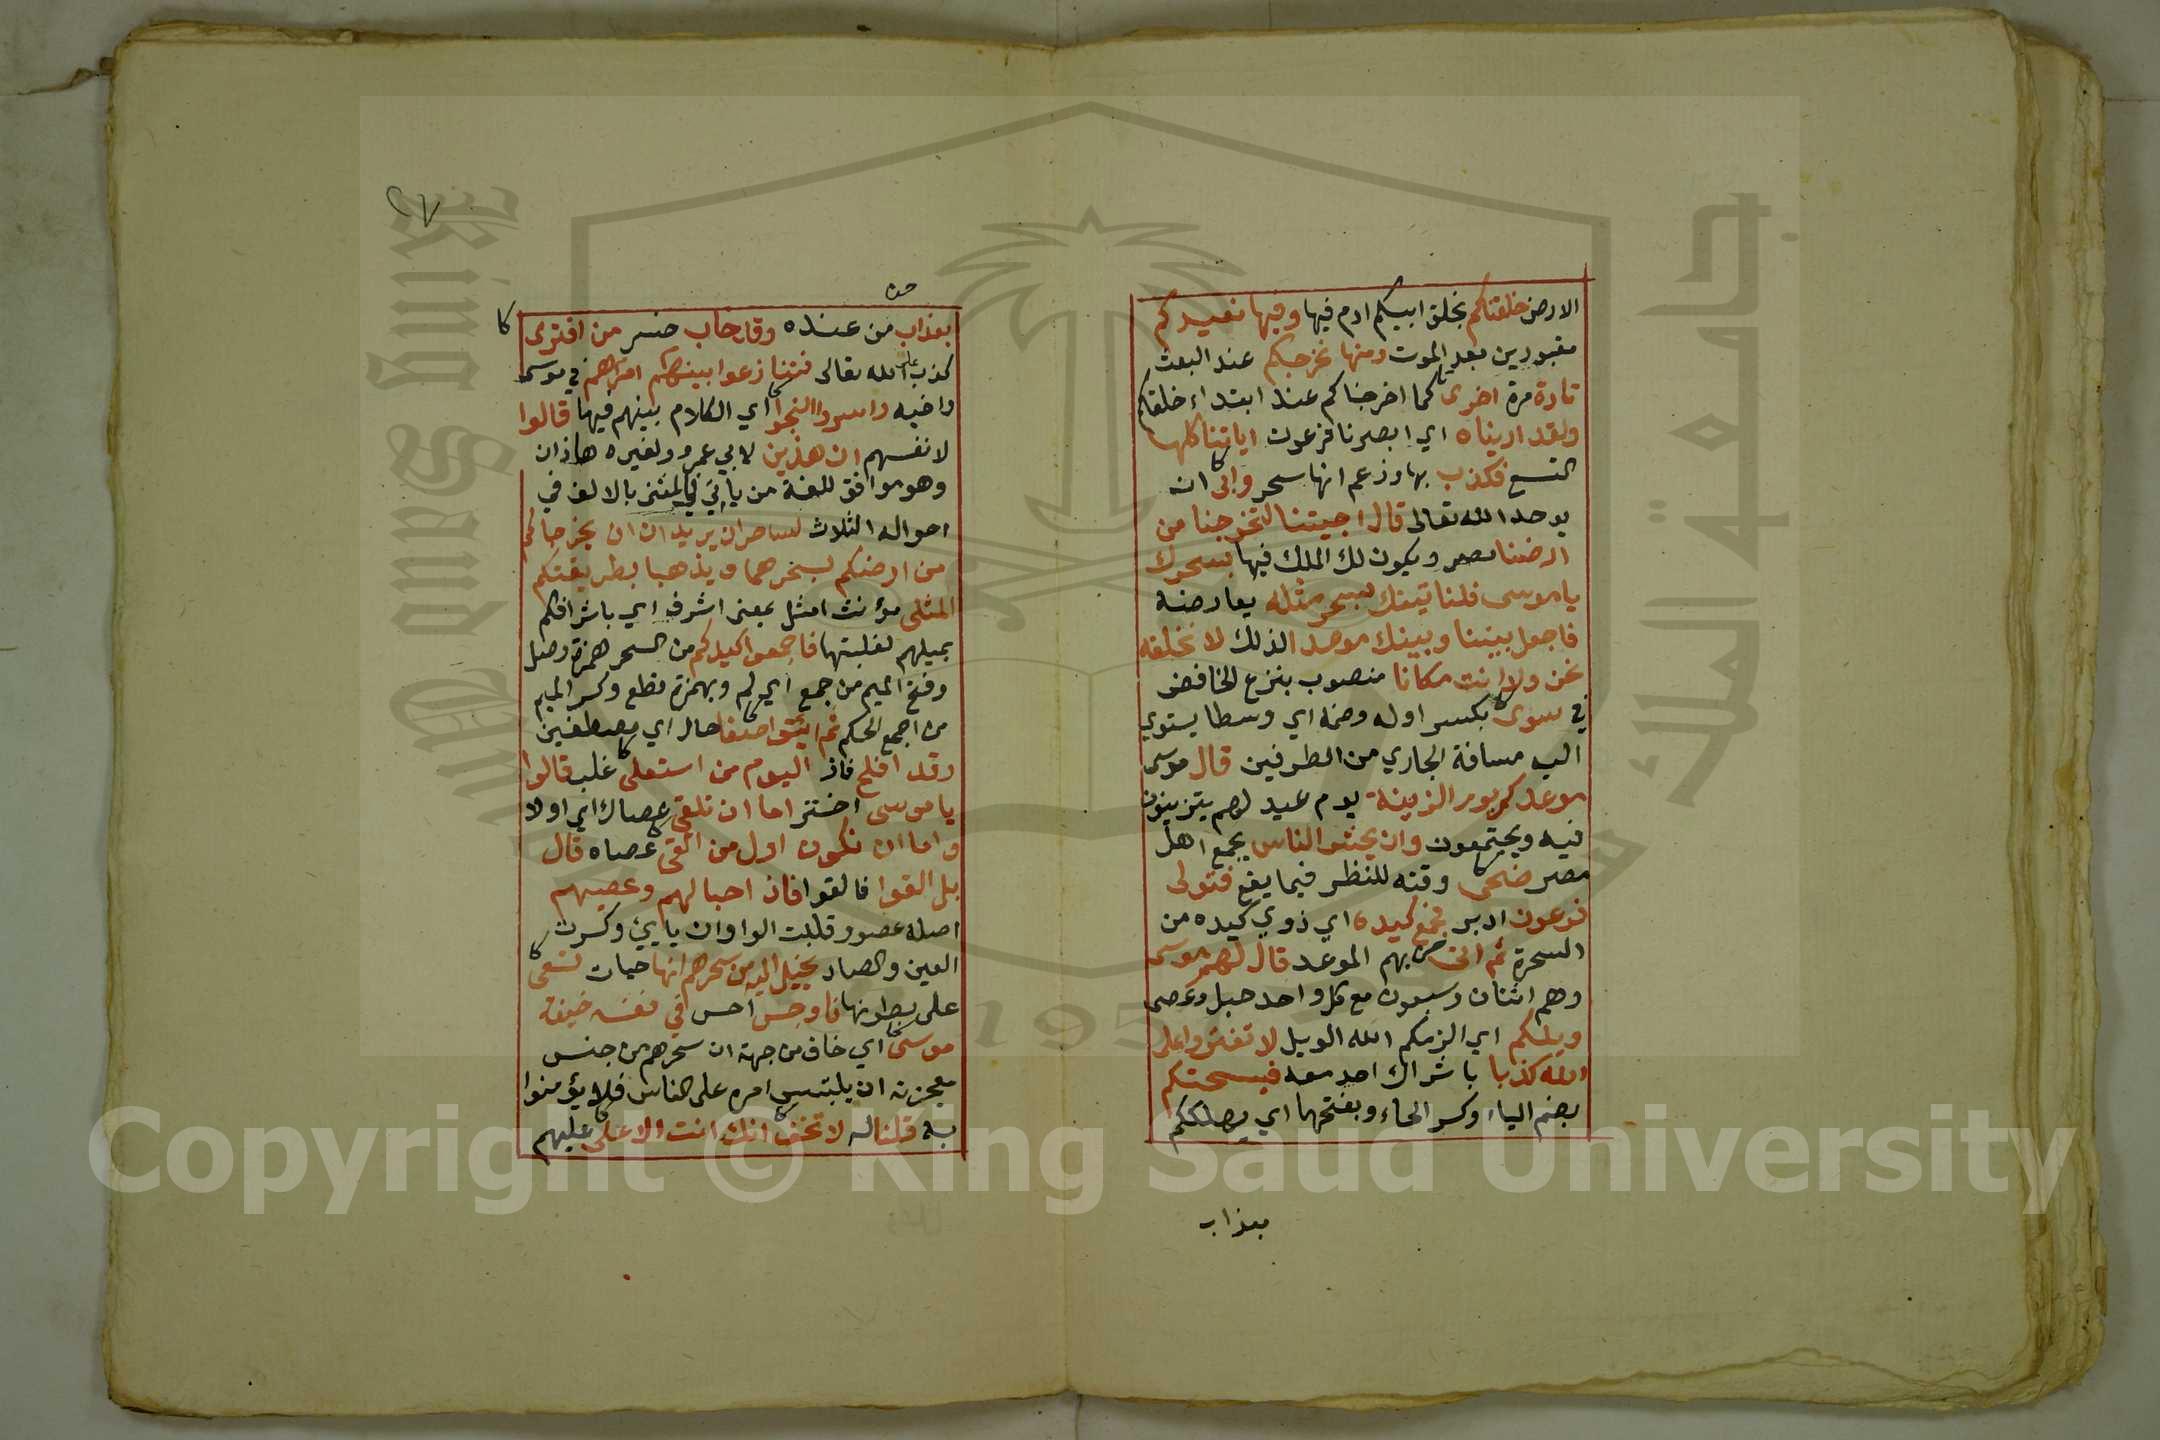 الارض خلقناكم بخلق ابيكم ادم فيها وفيها نعيدكم
مقبورين بعد الموت ومنها نخرجكم عند البعث
تارة مرة اخرى كما اخرجناكم عند ابتداء خلقكم
ولقد اريناه اي ابصرنا فرعون اياتنا كلها
التسع فكذب بها وزعم انها سحر وابى ان
يوحد الله تعالى قال اجيتنا لتخرجنا من
ارضنا مصر ويكون لك الملك فيها بسحرك
يا موسى فلناتينك بسحر مثله يعارضه
فاجعل بيننا وبينك موعدا لذلك لا نخلفه
نحن ولا انت مكانا منصوب بنزع الخافض
في سوى بكسر اوله وضمه اي وسطا يستوي
اليه مسافة الجاري من الطرفين قال موسى
موعدكم يوم الزينة يوم عيد لهم يتزينون
فيه ويجتمعون وان يحشر الناس يجمع اهل
مصر ضحى وقته للنظر فيما يقع فتولى
فرعون ادبر فجمع كيده اي ذوي كيده من
السحرة ثم اتى بهم الموعد قال لهم موسى
وهم اثنان وسبعون مع كل واحد حبل وعصى
ويلكم اي الزمكم الله الويل لا تفتروا على
الله كذبا باشراك احد معه فيسحتكم
بضم الياء وكسر الحاء وبفتحها اي يهلككم
بعذاب
٢٧
بعذاب من عنده وقد خاب خسر من افترى
كذب على الله تعالى فتنازعوا بينهم امرهم في موسى
واخيه واسروا النجوا اي الكلام بينهم فيها قالوا
لانفسهم ان هذين لابي عمرو ولغيره هاذان
وهو موافق للغة من ياتي في المثنى بالالف في
احواله الثلاث لساحران يريدان ان يخرجاكم
من ارضكم بسحرهما ويذهبا بطريقتكم
المثلى مؤنث امثل بمعنى اشرف اي باشرافكم
بميلهم لغلبتهما فاجمعوا كيدكم من السحر همزة وصل
وفتح الميم من جمع اي لم وبهمزة قطع وكسر الميم
من اجمع احكم ثم ائتوا صفا حال اي مصطفين
وقد افلح فاز اليوم من استعلى غلب قالوا
يا موسى اختر اما ان تلقي عصاك اي اولا
واما ان نكون اول من القى عصاه قال
بل القوا فالقوا فاذا حبالهم وعصيهم
اصله عصوو قلبت الواوان يايين وكسرت
العين والصاد يخيل اليه من سحرهم انها حيات تسعى
على بطونها فاوجس احس في نفسه خيفة
موسى اي خاف من جهة ان سحرهم من جنس
معجزته ان يلتبس امره على الناس فلا يؤمنوا
به قلنا له لا تخف انك انت الاعلى عليهم
Copyright © King Saud University
King Saud University
جامعة الملك سعود